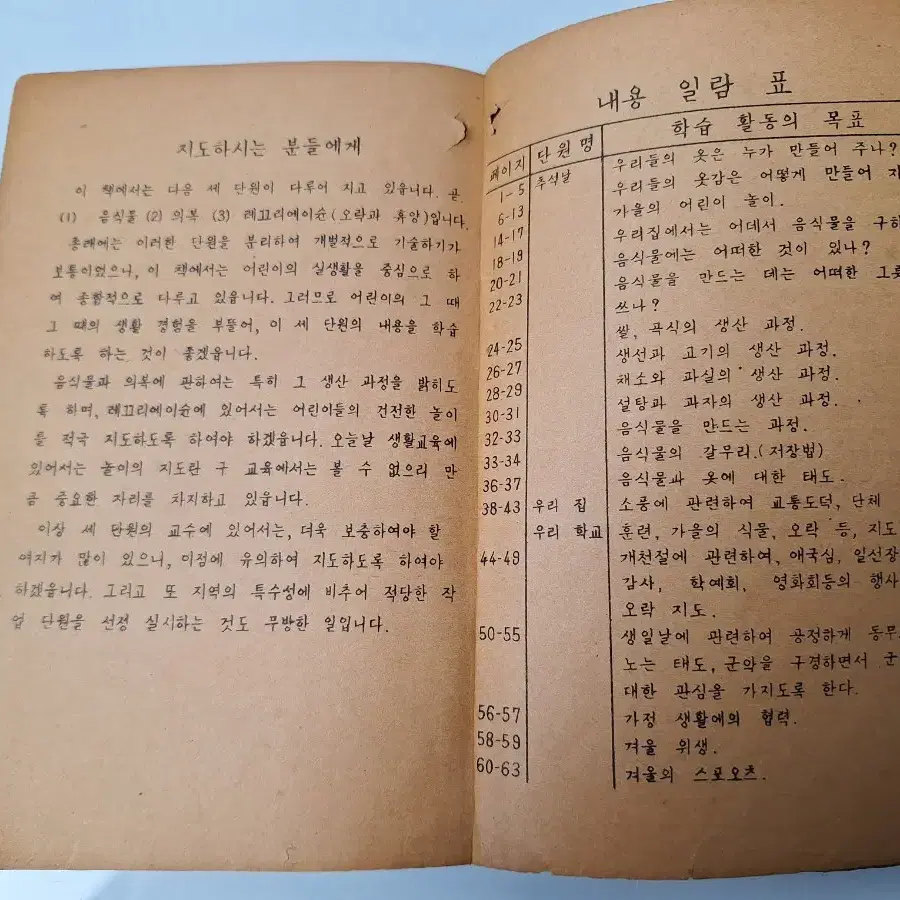 지도하시는 분들에게
이 책에서는 다음 세 단원이 다루어 지고 있읍니다. 곧
(1) 음식물 (2) 의복 (3) 레끄리에이슌(오락과 휴양)입니다.
종래에는 이러한 단원을 분리하여 개별적으로 기술하기가
보통이었으나, 이 책에서는 어린이의 실생활을 중심으로 하
여 종합적으로 다루고 있읍니다. 그러므로 어린이의 그 때
그 때의 생활 경험을 부뜰어, 이 세 단원의 내용을 학습
하도록 하는 것이 좋겠읍니다.
음식물과 의복에 관하여는 특히 그 생산 과정을 밝히도
록 하며, 레끄리에이슌에 있어서는 어린이들의 건전한 놀이
를 적극 지도하도록 하여야 하겠읍니다. 오늘날 생활교육에
있어서는 놀이의 지도란 구 교육에서는 볼 수 없으리 만
큼 중요한 자리를 차지하고 있읍니다.
이상 세 단원의 교수에 있어서는, 더욱 보충하여야 할
여지가 많이 있으니, 이점에 유의하여 지도하도록 하여야
하겠읍니다. 그리고 또 지역의 특수성에 비추어 적당한 작
업 단원을 선정 실시하는 것도 무방한 일입니다.
내용 일람 표
페이지 단원명 학습 활동의 목표
1-5 추석날 우리들의 옷은 누가 만들어 주나?
6-13 우리들의 옷감은 어떻게 만들어
14-17 가을의 어린이 놀이.
18-19 우리집에서는 어데서 음식물을
20-21 음식물에는 어떠한 것이 있나?
22-23 음식물을 만드는 데는 어떠한
쓰나?
24-25 쌀, 곡식의 생산 과정.
26-27 생선과 고기의 생산 과정.
28-29 채소와 과실의 생산 과정.
30-31 설탕과 과자의 생산 과정.
32-33 음식물을 만드는 과정.
33-34 음식물의 갈무리.(저장법)
36-37 음식물과 옷에 대한 태도.
38-43 우리 집 소풍에 관련하여 교통도덕, 단체
우리 학교 훈련, 가을의 식물, 오락 등, 지도
44-49 개천절에 관련하여, 애국심, 일선장
감사, 학예회, 영화회등의 행사
오락 지도.
50-55 생일날에 관련하여 공정하게 동무
노는 태도, 군악을 구경하면서 군
대한 관심을 가지도록 한다.
56-57 가정 생활에의 협력.
58-59 겨울 위생.
60-63 겨울의 스포오츠.